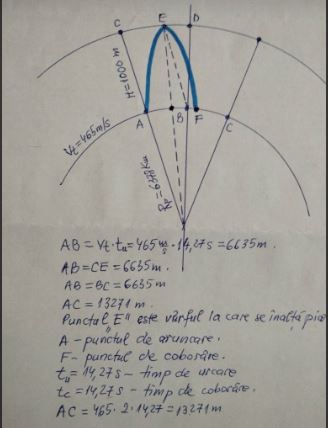 C E D
H=1000 m
A B F C
Vt=465m/s
Rp=6378km
AB = Vt·tu=465 m/s·14,27s=6635m.
AB=CE=6635m.
AB=BC=6635m
AC=13271m.
Punctul "E" este vârful la care se înalță
A - punctul de aruncare.
F - punctul de coborâre.
tu=14,27s - timp de urcare
tc=14,27s - timp de coborâre.
AC=465·2·14,27=13271m